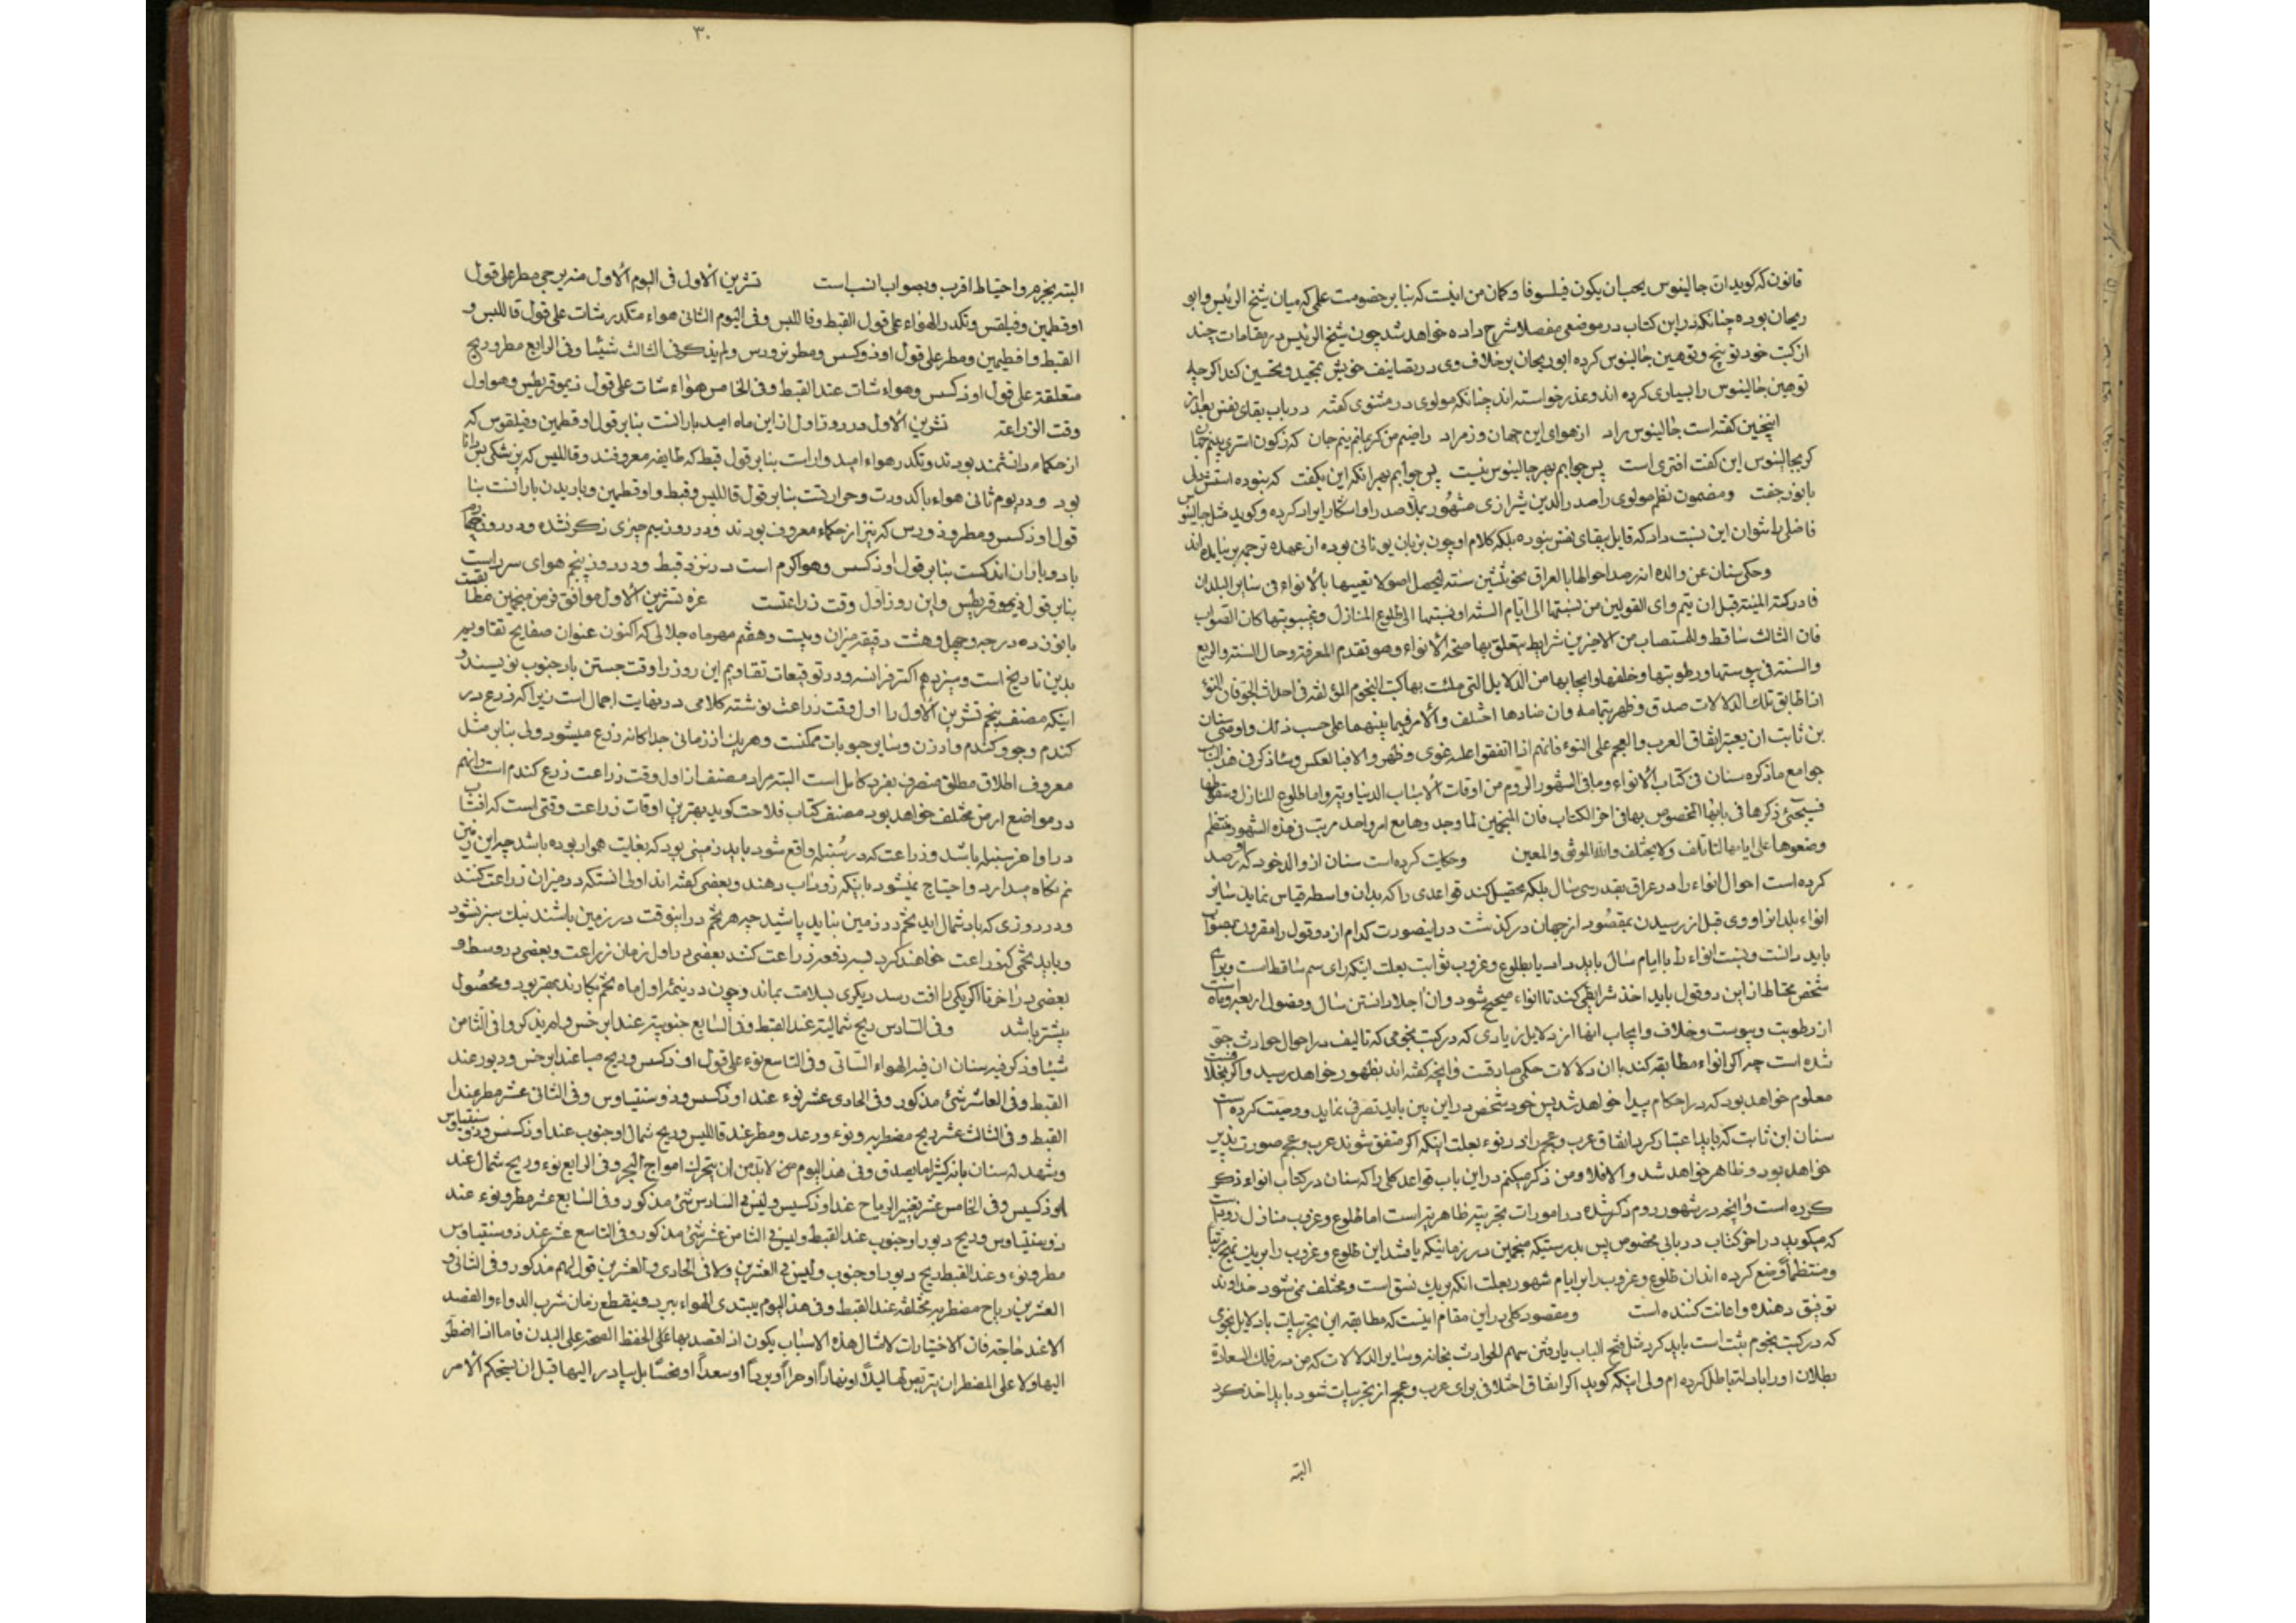 قانون که کوید ان جالینوس یحب ان یکون فیلسوفا و کمان من اینست که بنا بر خصومت علمی که میان شیخ الرئیس و ابو
ریحان بوده چنانکه در این کتاب در موضعی مفصلا شرح داده خواهد شد چون شیخ الرئیس در مقامات چند
از کتب خود توبیخ و توهین جالینوس کرده ابوریحان برخلاف وی در تصانیف خویش تمجید و تحسین کند اگرچه
توهین جالینوس را بسیاری کرده اند و عذر خواسته اند چنانکه مولوی در مثنوی کفته در باب بقای نفس بعد از
اینچنین کفته است جالینوس راد از هوای این جهان و از مراد راضیم من کز
کر بجالینوس این کفت افتری است پس جوابم بهر جالینوس نیست پس جوابم بهر انکه این بکفت که نبوده استش دل
با نور جفت و مضمون نظم مولوی را صدر الدین شیرازی مشهور بملا صدرا و اسکار ایراد کرده و کوید مثل جالینوس
فاضلی را نتوان این نسبت داد که قایل ببقای نفس نبوده بلکه کلام او چون بزبان یونانی بوده از عهده ترجمه بر نیامده اند
وحکی سنان عن والده انه رصد احوالها بالعراق نحو ثلثین سنة لیحصل اصولا یقیسها بالانواء فی سایر البلدان
فادرکته المنیة قبل ان یتم وای القولین من نسبتها الی ایام السنة او نسبتها الی طلوع المنازل و غیبوبتها کان الصواب
فان الثالث ساقط والمستصاب من الاخرین شرایط یتعلق بها صحة الانواء وهو تقدم المعرفة وحال السنة والربع
والسنة فی یبوستها ورطوبتها وخلفها وایجابها من الدلایل التی ملئت بها کتب النجوم المؤلفة فی احداث الجو فان النوء
اذا طابق تلک الدلالات صدق وظهر بتمامه وان ضادها اختلف والامر فیما بینهما علی حسب ذلک واوصی سنان
بن ثابت ان یعتبر اتفاق العرب والعجم علی النوء فانهم اذا اتفقوا علیه قوی وظهر والا فبالعکس وساذکر فی هذا الباب
جوامع ما ذکره سنان فی کتاب الانواء وما فی الشهور الروم من اوقات الاسباب الدنیاویة واما طلوع المنازل وسقوطها
فسیجئ ذکرها فی بابها المخصوص بها فی اخر الکتاب فان المنجمین لما وجدوها مع امر واحد مرتب فی هذه الشهور منتظم
وضعوها علی ایامها لتاتلف ولا یختلف والله الموفق والمعین وحکایت کرده است سنان از والد خود که او رصد
کرده است احوال انواء را در عراق بقدر سی سال بلکه تحصیل کند قواعدی را که بدان واسطه قیاس نماید سایر
انواء بلدانرا و وی قبل از رسیدن بمقصود از جهان در کذشت در اینصورت کدام از دو قول را مقرون بصواب
باید دانست و نسبت انواء را با ایام سال باید داد یا بطلوع و غروب ثوابت بعلت اینکه رای سیم ساقط است و برای
شخص محتاط از این دو قول باید اخذ شرایطی کند تا انواء صحیح شود و ان اجلا دانستن سال و فصول اربعه و ماه است
از رطوبت و یبوست و خلاف و ایجاب انها از دلایل زیادی که در کتب نجومی که تالیف در احوال حوادث جو
شده است چه اکر انواء مطابقه کند با ان دلالات حکمی صادقست و انچه کفته اند بظهور خواهد رسید و اکر بخلافست
معلوم خواهد بود که در احکام پیدا خواهد شد پس خود شخص در این بین باید تصرفی نماید و وصیت کرده است
سنان ابن ثابت که باید اعتبار کرد اتفاق عرب و عجم را در نوء بعلت اینکه اکر متفق شوند عرب و عجم صورت پذیر
خواهد بود و ظاهر خواهد شد والا فلا و من ذکر میکنم در این باب قواعد کلی را که سنان در کتاب انواء ذکر
کرده است و انچه در شهور روم ذکر شده در امورات تجربیه ظاهر تر است اما طلوع و غروب منازل
که میکوید در اخر کتاب در بابی مخصوص پس بدرستیکه منجمین در زمانیکه یافتند این طلوع و غروب را بر یک نهج مرتبا
و منتظما وضع کرده اند ان طلوع و غروب را بر ایام شهور بعلت انکه بر یک نسق است و مختلف نمی شود خداوند
توفیق دهنده و اعانت کننده است و مقصود کلی در این مقام اینست که مطابقه این تجربیات با دلایل نجومی
که در کتب نجوم ثبت است باید کرد مثل فتح الباب یا رفتن سهم الحوادث بخانه و سایر الدلالات که من در فلک السعادة
بطلان او را با دلته باطل کرده ام ولی اینکه کوید اکر اتفاق اختلافی برای عرب و عجم از تجربیات شود باید اخذ کرد
البته
٣٠
البته بحزم و احتیاط اقرب و بصواب انسب است تشرین الاول فی الیوم الاول منه یرجی مطر علی قول
اوقطمین وفیلقس وتکدر الهواء علی قول القبط وقاللبس وفی الیوم الثانی هواء متکدر شات علی قول قاللبس و
القبط واقطیمین ومطر علی قول اوذوکسس ومطرنزورس ولم یذکر فی الثالث شیئا وفی الرابع مطر وریح
متعلقة علی قول اوذکسس وهواء شات عند القبط وفی الخامس هواء شات علی قول ذیموقریطس وهو اول
وقت الزراعة تشرین الاول در روز اول از این ماه امید بارانست بنا بر قول اوقطمین وفیلقوس که
از حکماء دانشمند بودند و تکدر هواء امیدوار است بنا بر قول قبط که طایفه معروفند و قاللیس که پزشکی بس دانا
بود و در یوم ثانی هواء با کدورت و حرارتست بنا بر قول قاللیس و قبط و اوقطمین و باریدن بارانست بنا
قول اوذکسس و مطروذورس که نیز از حکماء معروف بودند و در روز سیم چیزی ذکر نشده و در روز چهارم
باد و باران اندکست بنا بر قول اوذکسس و هوا کرم است در نزد قبط و در روز پنجم هوای سرد است
بنا بر قول ذیموقریطس و این روز اول وقت زراعتست غره تشرین الاول موافق فرس منجمین مطابقست
با نوزده درجه و چهل و هشت دقیقه میزان و بیست و هفتم مهر ماه جلالی که اکنون عنوان صفایح تقاویم
بدین تاریخ است و سیزدهم اکتبر فرانسه و در توقیعات تقاویم این روز را وقت جستن باد جنوب نویسند و
اینکه مصنف پنجم تشرین الاول را اول وقت زراعت نوشته کلامی در نهایت اجمال است زیرا که زرع در
کندم و جو و کندم و ارزن و سایر حبوبات ممکنست و هر یک از زمانی جداکانه زرع میشود ولی بنا بر مثل
معروف اطلاق مطلق منصرف بفرد کامل است البته مراد مصنف از اول وقت زراعت زرع کندم است و انهم
در مواضع ارض مختلف خواهد بود مصنف کتاب فلاحت کوید بهترین اوقات زراعت وقتی است که افتاب
در اواخر سنبله باشد و زراعت که در سنبله واقع شود باید زمینی بود که بغایت هموار بوده باشد چه این زمین
نم نکاه میدارد و احتیاج نمیشود باینکه زود اب دهند و بعضی کفته اند اولی انستکه در میزان زراعت کنند
و در روزی که باد شمال اید تخم در زمین نباید پاشید چه هر تخم در اینوقت در زمین باشند نیک سبز نشود
و باید تخمی که زراعت خواهند کرد بسه دفعه زراعت کنند بعضی در اول زمان زراعت و بعضی در وسط و
بعضی در اخر تا اکر یکی را افت رسد دیکری بسلامت بماند و چون در نیمه اول ماه تخم بکارند بهتر بود و محصول
بیشتر باشد وفی السادس ریح شمالیة عند القبط وفی السابع جنوبیة عند ابرخس ولم یذکروا فی الثامن
شیئا وذکر فیه سنان ان فیه الهواء الشاتی وفی التاسع نوء علی قول اوذکسس وریح صبا عند ابرخس ودبور عند
القبط وفی العاشر شئ مذکور وفی الحادی عشر نوء عند اوذکسس وذوسنتیاوس وفی الثانی عشر مطر عند
القبط وفی الثالث عشر ریح مضطربة ونوء ورعد ومطر عند قاللیس وریح شمال او جنوب عند اوذکسس وذوسنتیاوس
ویشهد له سنان بانه کثیرا ما یصدق وفی هذا الیوم من لا بد من ان یتحرک امواج البحر وفی الرابع نوء وریح شمال عند
اوذکسیس وفی الخامس عشر تغیر الریاح عند اوذکسیس ولیس فی السادس شئ مذکور وفی السابع عشر مطر ونوء عند
ذوسنتیاوس وریح دبور او جنوب عند القبط ولیس فی الثامن عشر شئ مذکور وفی التاسع عشر عند ذوسنتیاوس
مطر ونوء وعند القبط ریح دبور او جنوب ولیس فی العشرین ولا فی الحادی والعشرین قول لهم مذکور وفی الثانی و
العشرین ریاح مضطربة مختلفة عند القبط وفی هذا الیوم یبتدی الهواء یبرد وینقطع زمان شرب الدواء والفصد
الا عند حاجة فان الاختیارات لامثال هذه الاسباب یکون اذا قصد بها علی الحفظ الصحة علی البدن فاما اذا اضطر
الیها فلا علی المضطر ان یتربص لها لیلا او نهارا او حرا او بردا او سعدا او نحسا بل یبادر الیها قبل ان یستحکم الامر